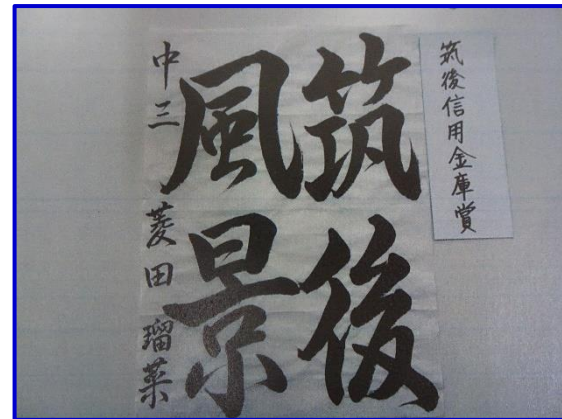 筑後信用金庫賞
筑後
風景
中三 菱田 瑠菜